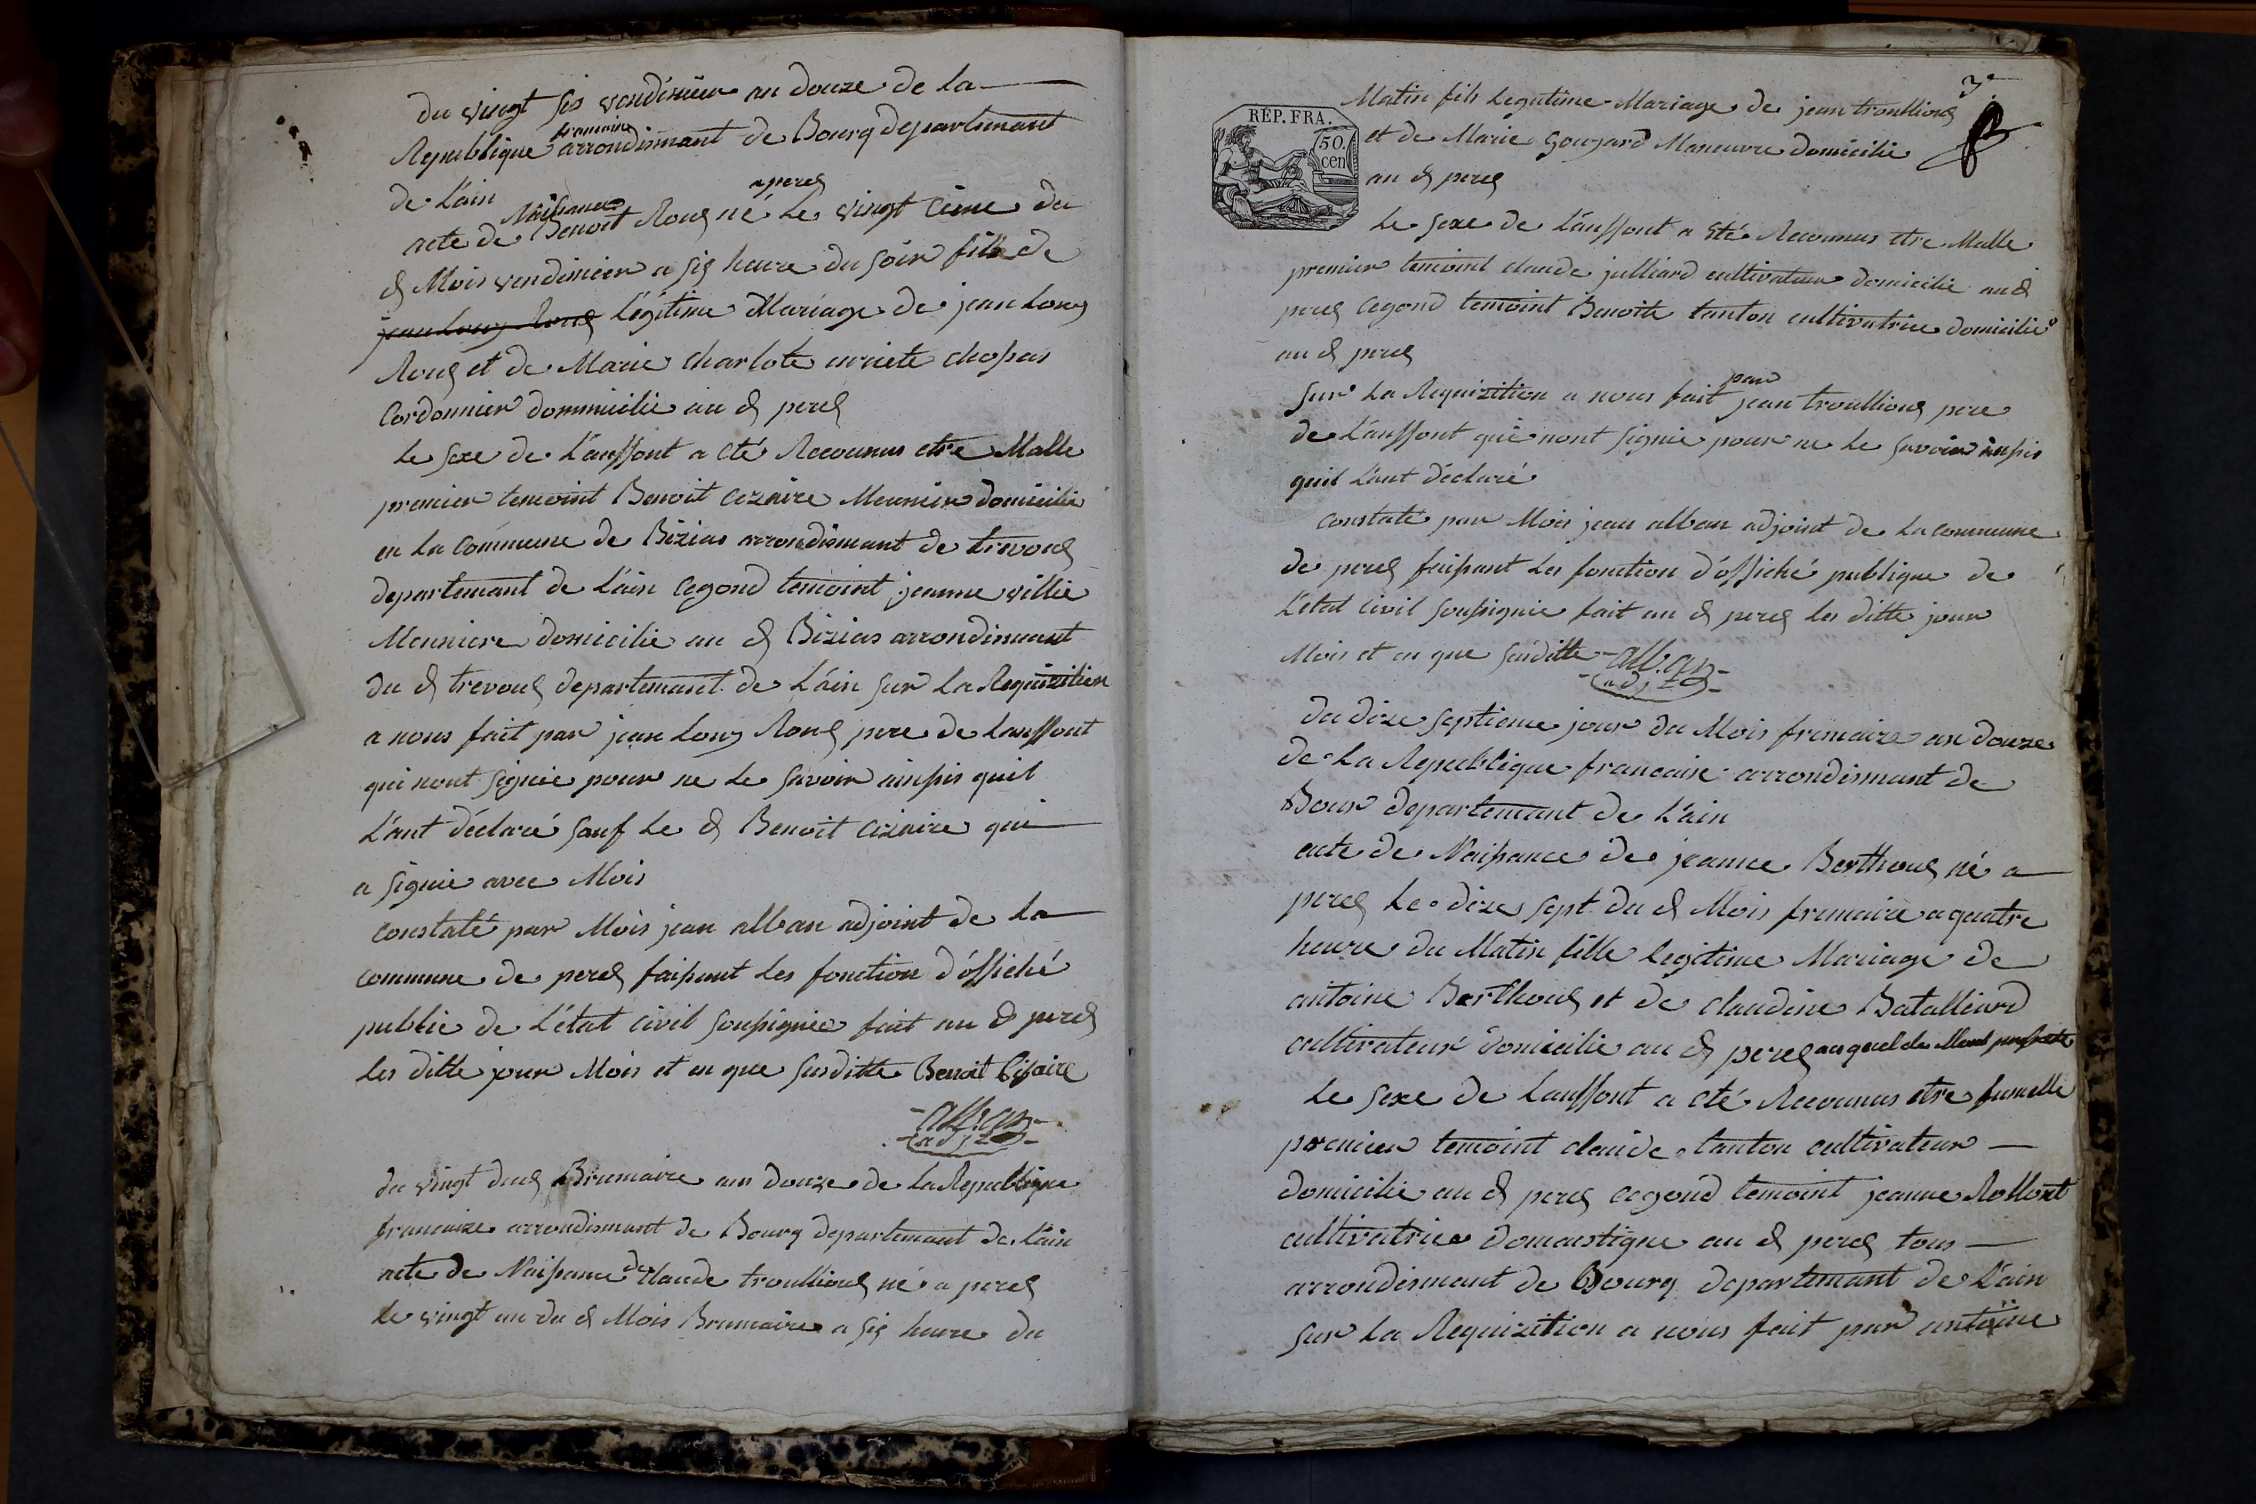 du vingt sis vendémiere an douze de la
Republique francaise arrondismant de Bourg departemant
de L'ain
acte de Naissance Benoit Rous né a peres Le vingt cime du
d Mois vendimiere a sis heure du soir fils de
jean Louy Rous Légitime Mariage de jean Louy
Rous et de Marie charlote chopas
Cordonnier dommicilie au d peres
Le sexe de L'anffont a eté Reconnus etre Malle
premier temoint Benoit cezaire Meunier domicilie
en La Commune de Bizias arrondismant de trevous
departemant de L'ain cegond temoint jeanne villie
Meuniere domicilie au d Bizias arrondismant
du d trevous departemant de L'ain sur La Requizition
a nous fait par jean Louy Rous pere de Lanffont
qui nont signie pour ne Le savoir ainssis quil
L'ant déclaré sauf Le d Benoit cizaire qui
a signie avec Mois
constaté par Mois jean alban adjoint de La
commune de peres faissant Les fonction d'offiché
public de L'état civil soussignie fait au d peres
Les ditte jour Mois et an que susditte Benoit Cisaire
alban
adj
du vingt deus Brumaire an douze de La Republique
francaize arrondismant de Bourg departemant de L'ain
acte de Naissance de Claude troullious né a peres
le vingt un du d Mois Brumaire a sis heure du
3
REP. FRA.
50.
cen
Matin fils Legitime Mariage de jean troullious
et de Marie Goujard Maneuvre domicilie
au d peres
Le sexe de L'anffont a eté Reconnus etre Malle
premier temoint claude julliard cultivateur domicilie au d
peres cegond temoint Benoite tanton cultivatrice domicilie
au d peres
sur La Requizition a nous fait par jean troullious pere
de L'anffont qui nont signie pour ne Le savoir ainssis
quil L'ant déclaré
constaté par Mois jean alban adjoint de La commune
de peres faissant Les fonction d'offiché publique de
L'état civil soussignie fait au d peres les ditte jour
Mois et an que susditte alban
adj
du dixe septieme jour du Mois frimaire an douze
de La Republique francaise arrondismant de
Bour departemant de L'ain
acte de Naissance de jeanne Berthous né a
peres Le dixe sept du d Mois frimaire a quatre
heure du Matin fille Legitime Mariage de
antoine Berthous et de claudine Batalliard
cultivateur domicilie au d peres
Le sexe de Lanffont a eté Reconnus etre fumelle
premier temoint claude tanton cultivateur
domicilie au d peres cegond temoint jeanne Rollext
cultivatrice domaestique au d peres tous
arrondismant de Bourg departemant de L'ain
sur La Requizition a nous fait par antoine